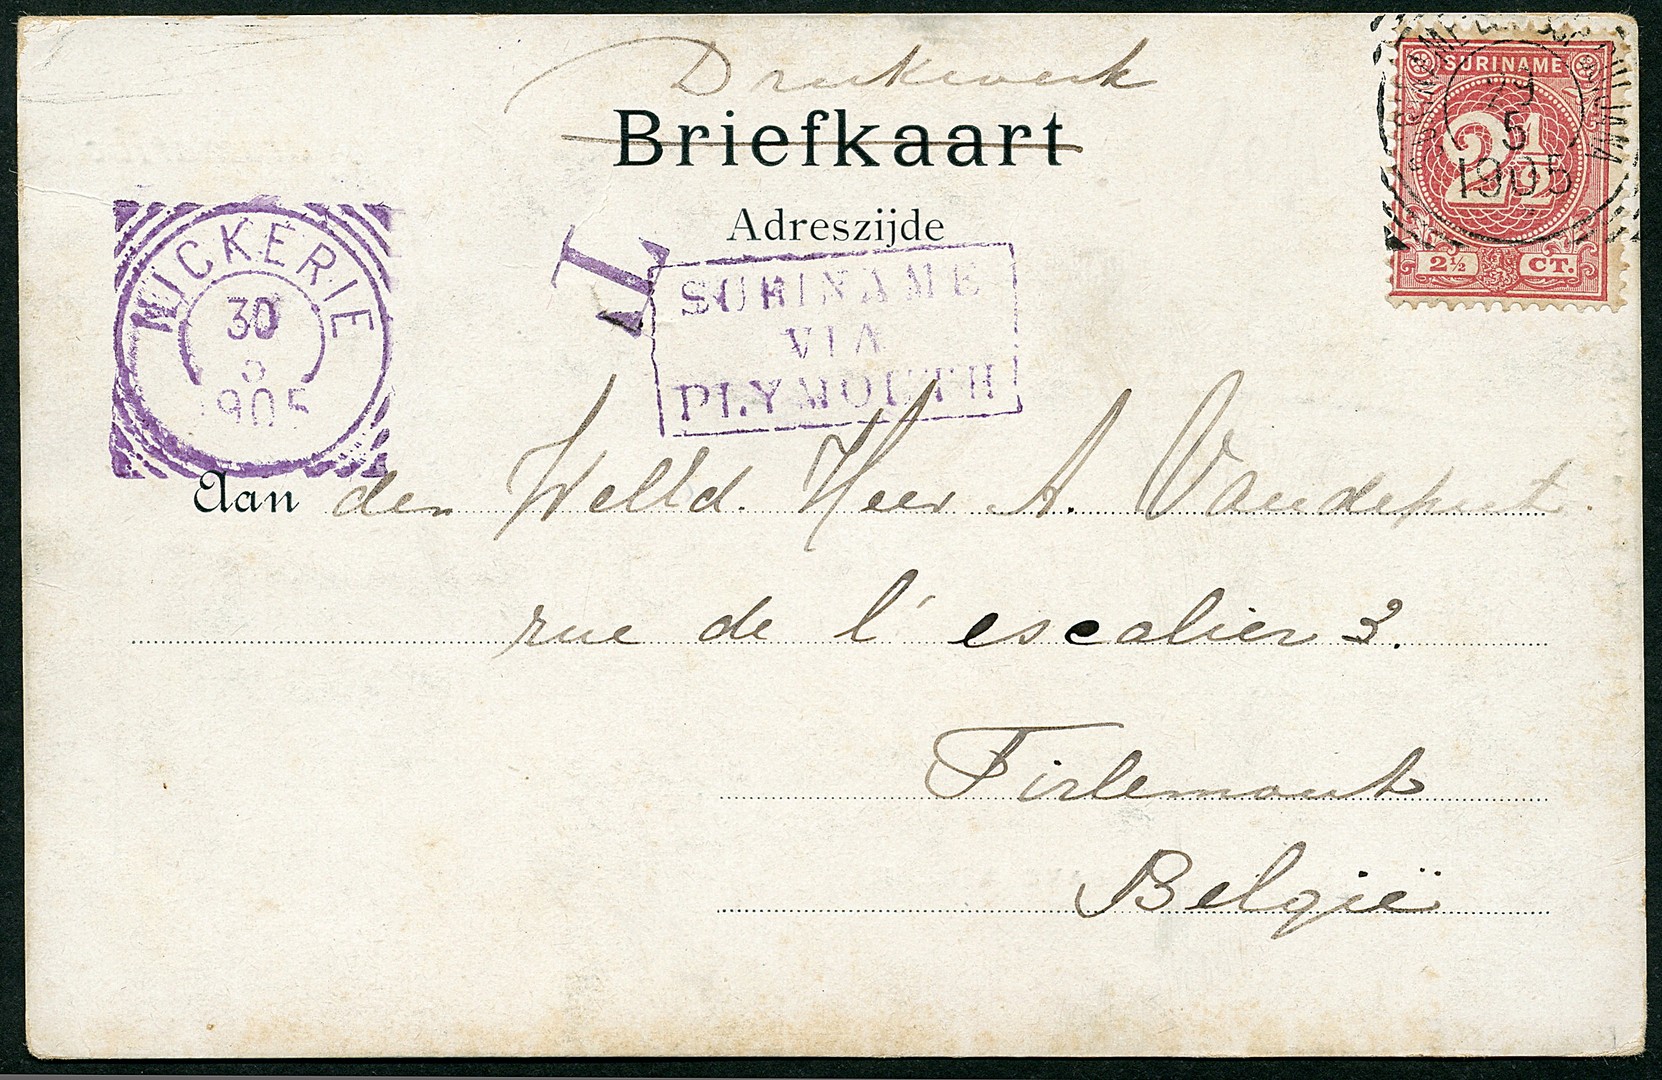 Drukwerk
Briefkaart
Adreszijde
SURINAME
2½
2½ CT.
29
5
1905
NICKERIE
30
5
1905
T
SURINAME
VIA
PLYMOUTH
Aan den Welld. Heer A. Vandeput.
rue de l'escalier 3.
Tirlemont
België